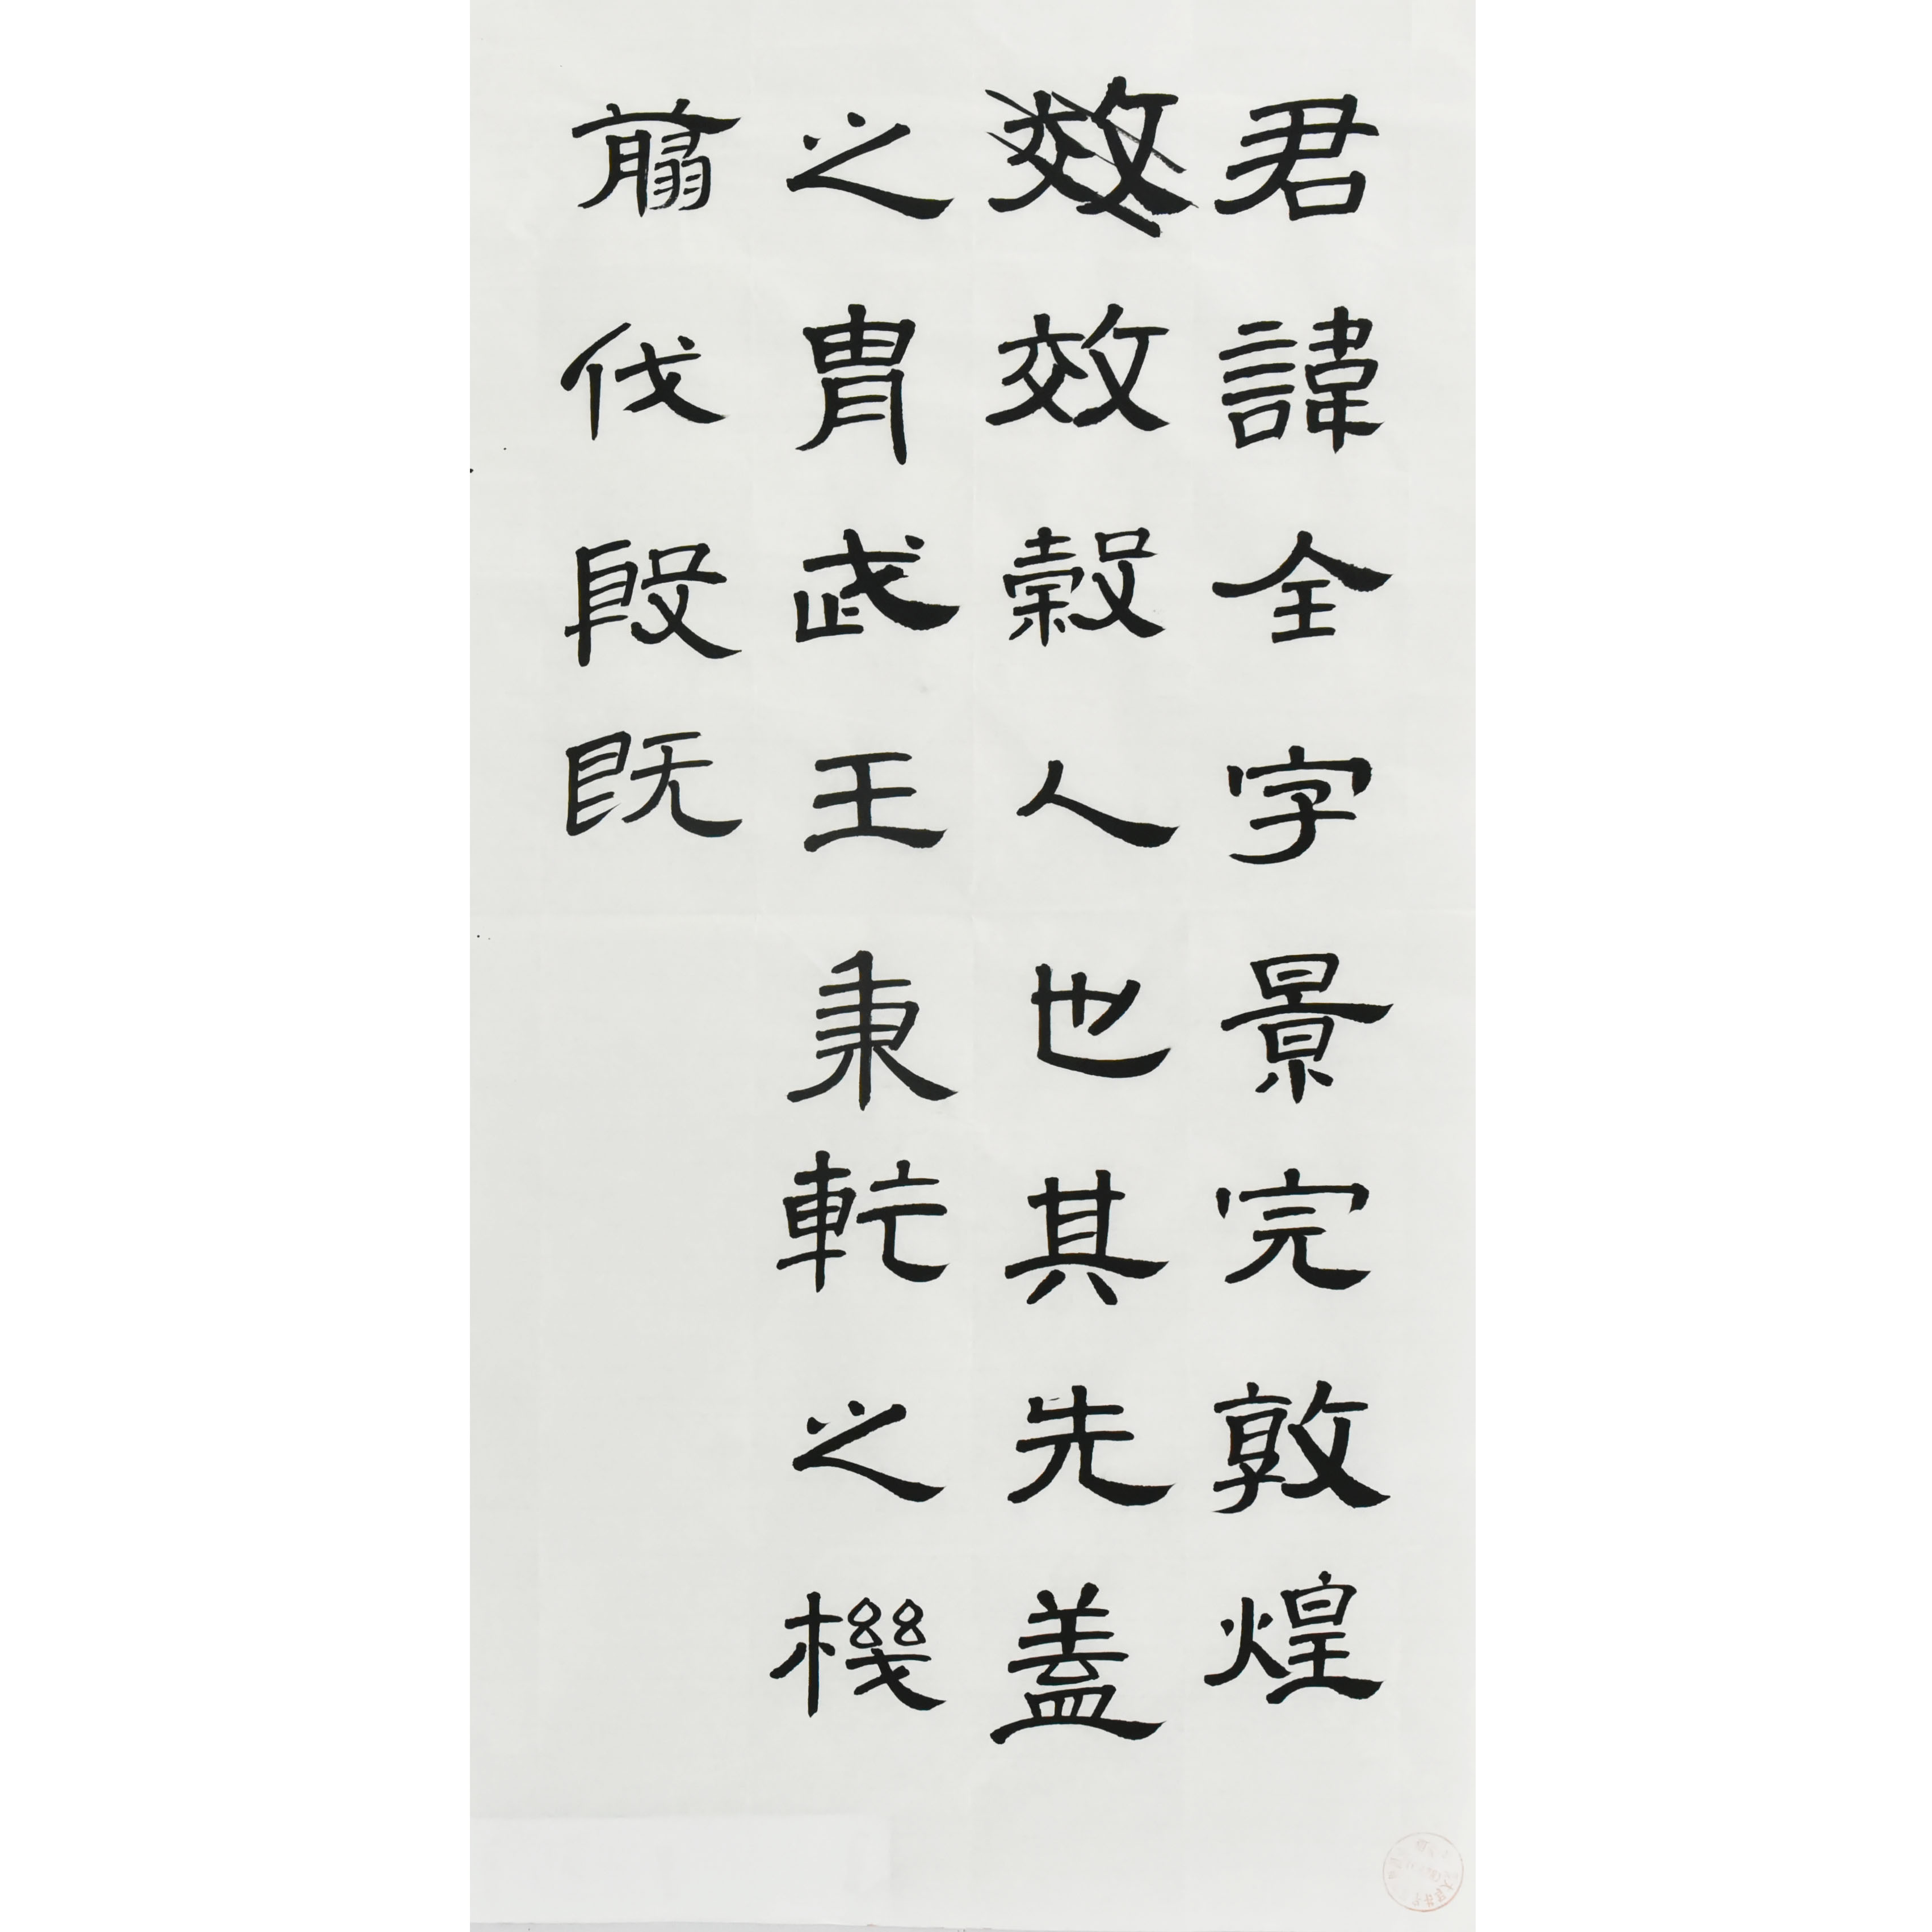 君諱全字景完敦煌
效效穀人也其先蓋
之胄武王秉乾之機
翦伐殷既